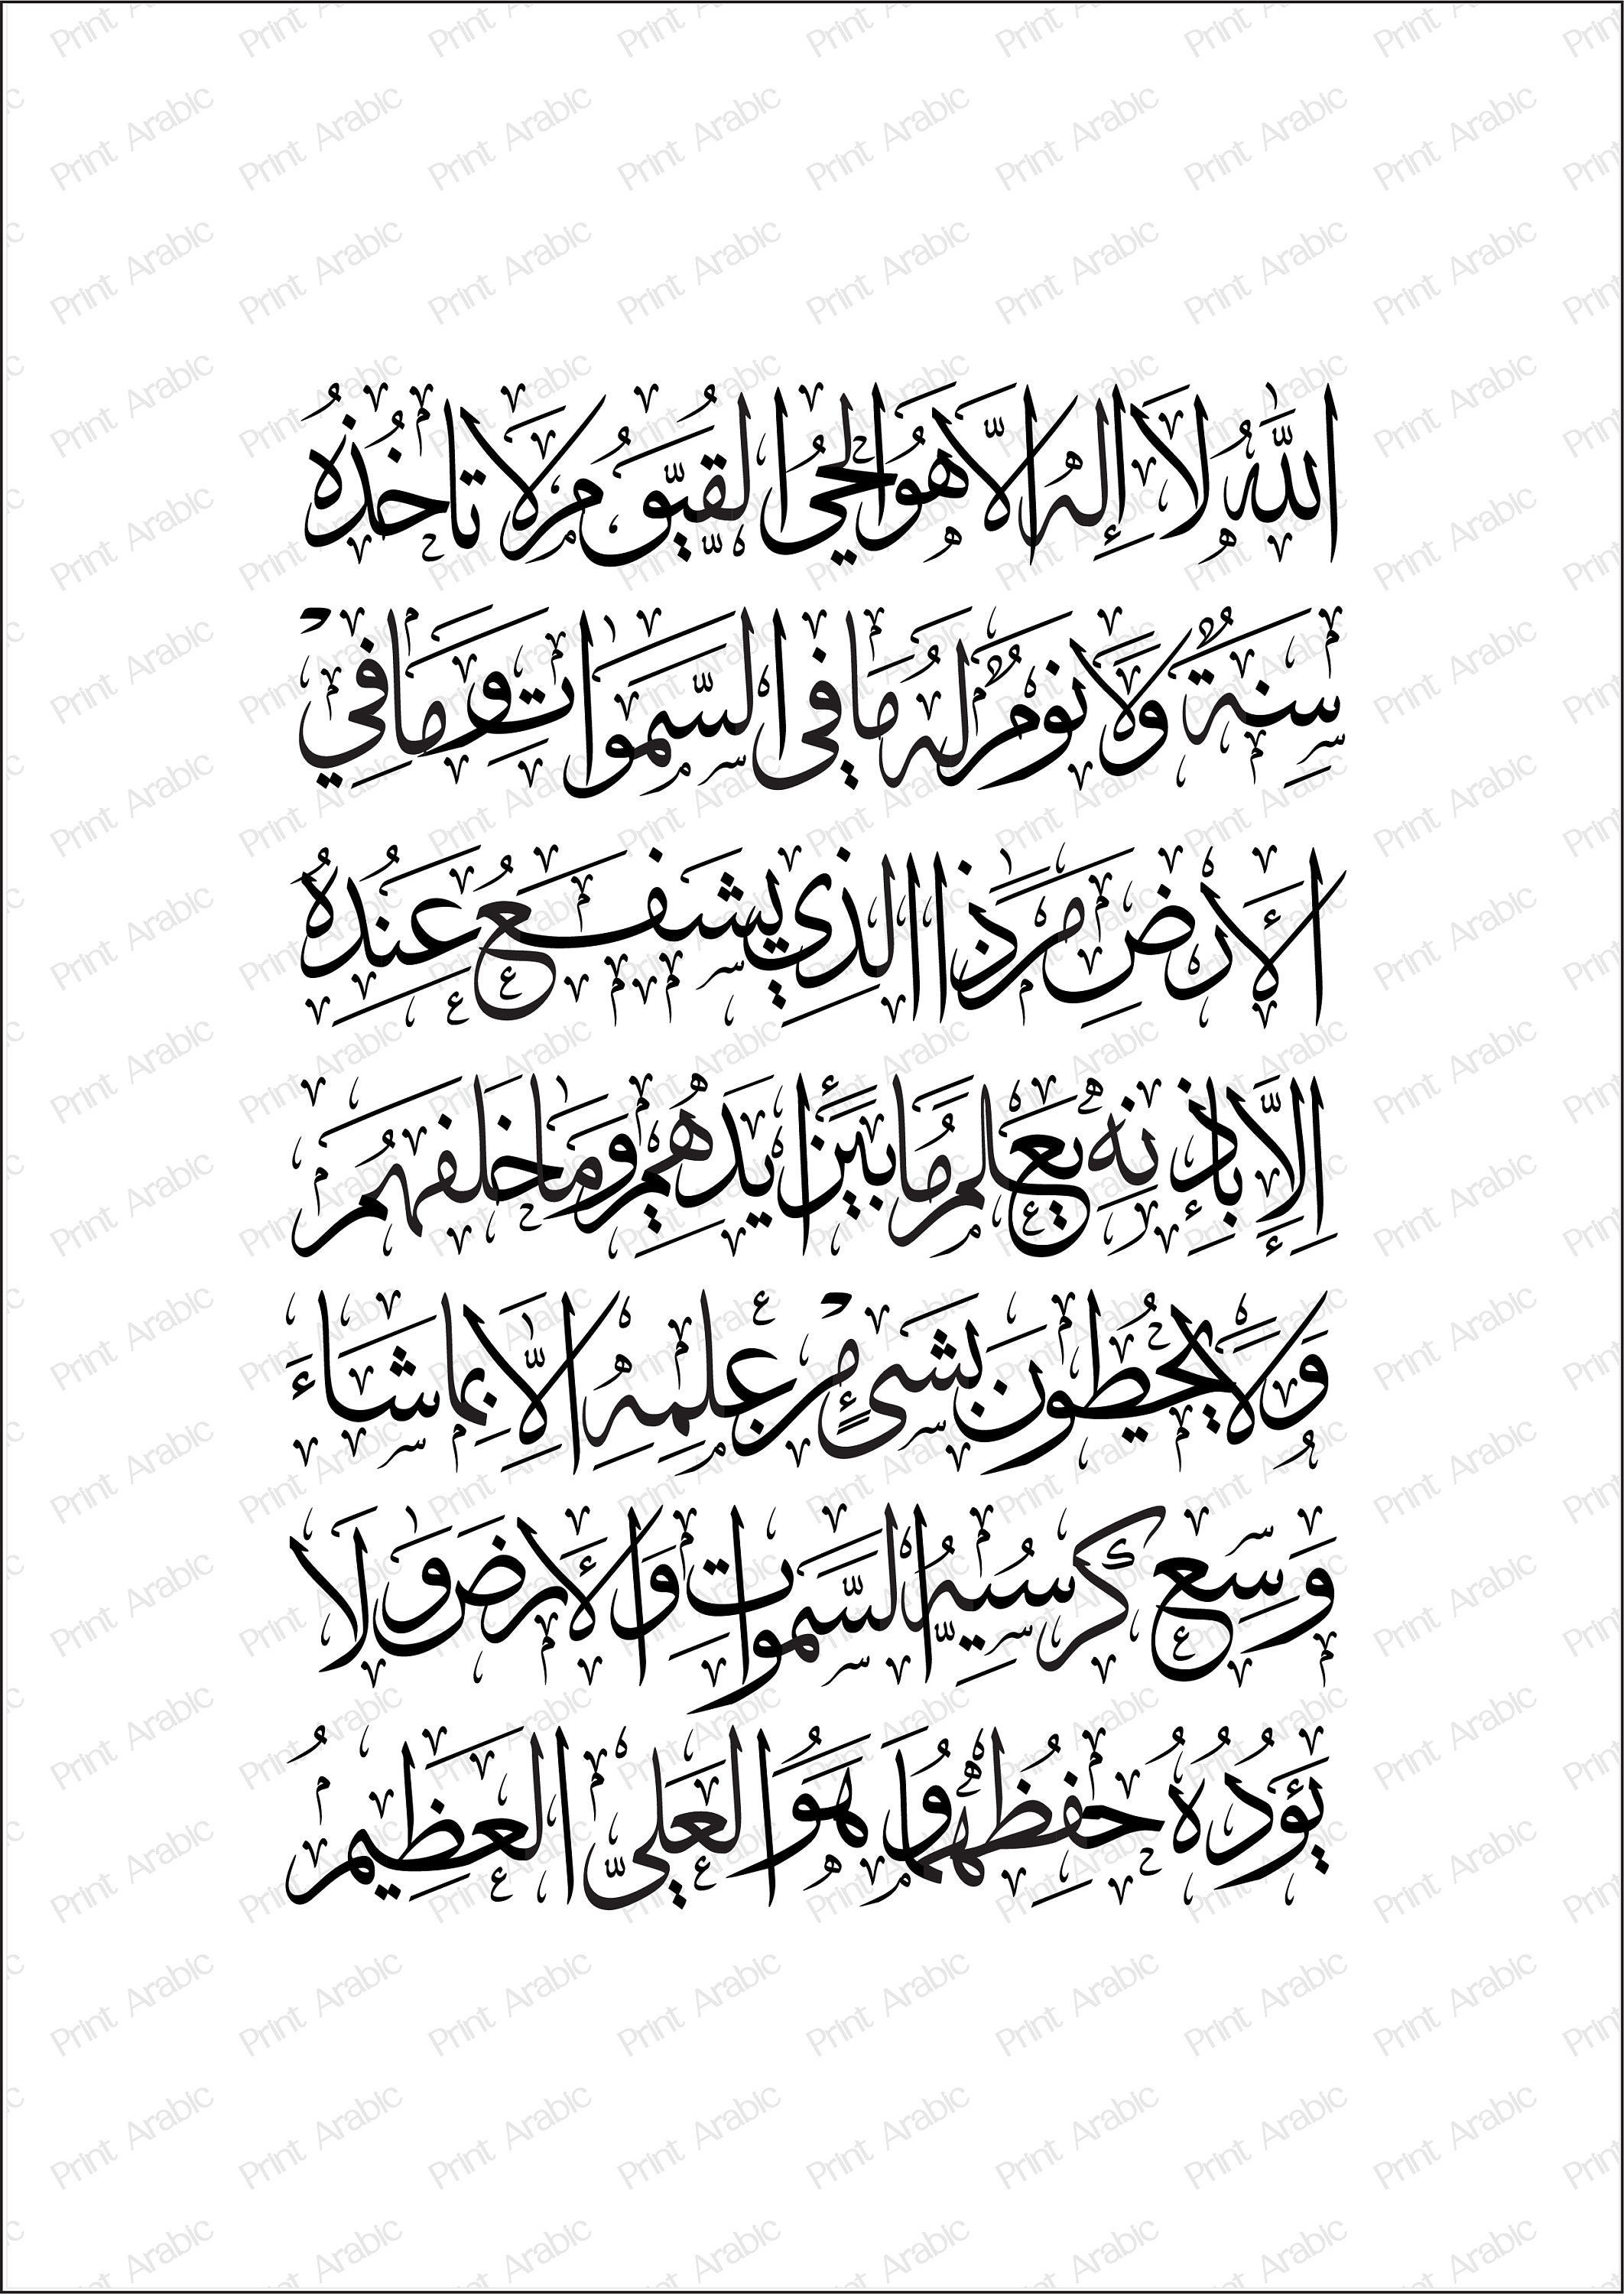 اللّٰهُ لَا إِلٰهَ الَّا هُوَ الحَيُّ القَيّومُ لَا تَاخُذُهُ
سِنَةٌ وَلَا نَومٌ لَهُ مَا فِي السَّمٰوَاتِ وَمَا فِي
الأَرضِ مَن ذَا الَّذِي يَشفَعُ عِندَهُ
إِلَّا بِإِذنِهِ يَعلَمُ مَا بَينَ أَيدِيهِم وَمَا خَلفَهُم
وَلَا يُحِيطُونَ بِشَيءٍ مِن عِلمِهِ إِلَّا بِمَا شَاءَ
وَسِعَ كُرسِيُّهُ السَّمٰوَاتِ وَالأَرضَ وَلَا
يَؤدُهُ حِفظُهُمَا وَهُوَ العَلِيُّ العَظِيمُ
Print Arabic